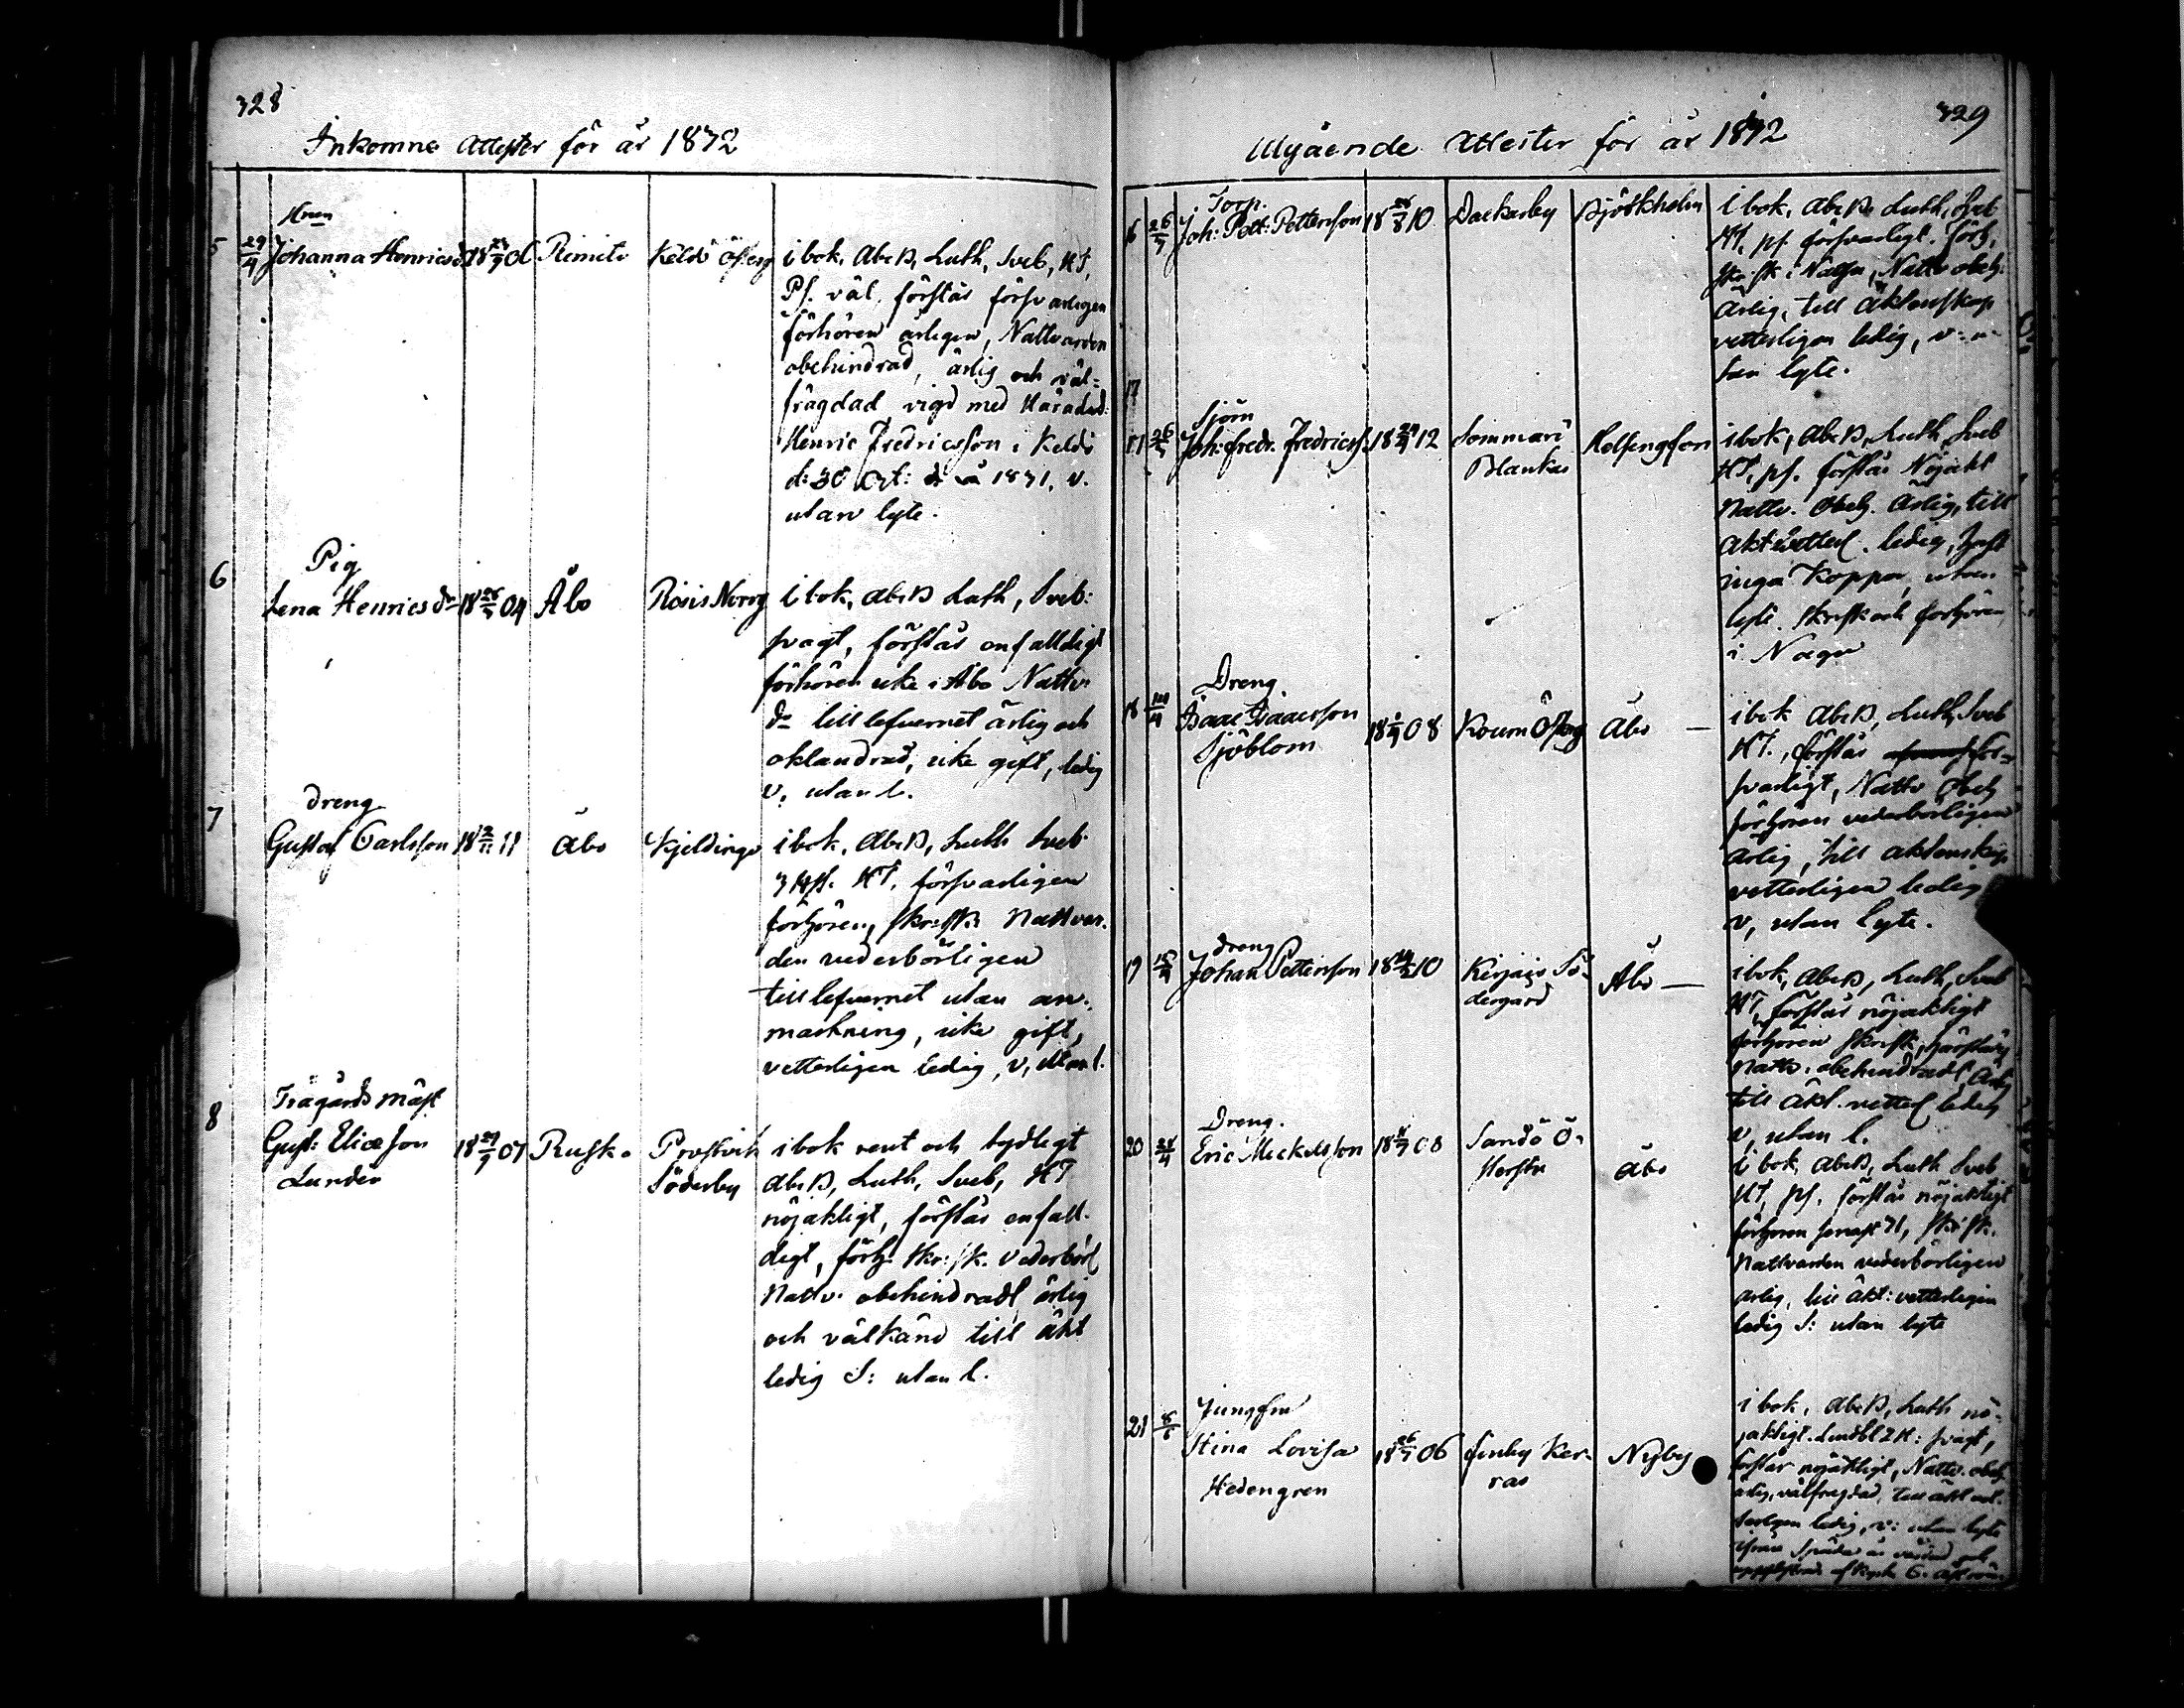 328
Inkomne Attester för år 1832
Hrun
5 29/4 Johanna Henricsdr 18 06 Rimito Keldö Österg i bok, AbcB, Luth, Sveb, HT,
Ps. väl, förstår försvarligen
förhören årligen, Nattvarden
obehindrad, ärlig och väl-
frägdad, vigd med Häradsd:
Henric Fredricsson i Keldö
d: 30 Oct: 1831, v.
utan lyte.
Pig
6 Lena Henricsdr 18 04 Åbo Risis Norrg i bok, AbcB Luth, Sveb:
svagt, förstår enfaldigt
förhören icke i Åbo Nattv:
dr till lefvernet ärlig och
oklandrad, icke gift, ledig
v, utan l.
Dreng
7 Gustaf Carlsson 18 2/11 11 Åbo Kjeldinge i bok, AbcB, Luth Sveb
HT, försvarligen
förhören, skr:sk: Nattvar-
den vederbörligen
till lefvernet utan an-
märkning, icke gift,
vetterligen ledig, v, utan l.
Trägårds mäst
8 Gust: Eliæson 18 29/9 07 Rusko Prostvik i bok rent och tydligt
Lunden Söderby AbcB, Luth, Sveb, HT
nöjaktigt, förstår enfall-
digt, förh: skr:sk. Vederbörl
Nattv. obehindradt ärlig
och välkänd till äkt
ledig S: utan l.
329
Utgående Attester för år 1832
Torp.
16 26/3 Joh: Pett: Pettersson 18 10 Dackarby Björkholm i bok, AbcB, Luth, Sveb
HT, ps. försvarligt. Förh,
skr:sk i Nattv, Nattv obeh:
ärlig, till äktenskap
vetterligen ledig, v: u-
tan lyte.
17
Sjöm
17 26/3 Joh: Fredr. Fredricss. 18 12 Sommarö Helsingfors i bok, AbcB, Luth, Sveb
Blankas HT, ps. förstår Nöjakt
Nattv. Obeh. Ärlig, till
äkt vetterl. ledig,
inga Koppor, utan
lyte. Skrift och förhören
i Nagu
Dreng
18 Isaac Isaacsson 18 08 Koum Österg Åbo — i bok AbcB, Luth, Sveb
Sjöblom HT., förstår för-
svarligt, Nattv Obeh
förhören vederbörligen
ärlig, till äktenskap
vetterligen ledig
v, utan lyte.
Dreng
19 15/4 Johan Pettersson 18 10 Kirjais Sö- Åbo — i bok, AbcB, Luth, Sveb
dergård HT, förstår nöjaktigt
förhören skrift,
Nattv. obehindradt, ärlig
till äkt. vetterl ledig
v, utan l.
Dreng.
20 24/4 Eric Mickelsson 18 08 Sandö Ö- Åbo i bok, AbcB, Luth Sveb
HT, ps. förstår nöjaktigt
förhören senast 31, skr:sk.
Nattvarden vederbörligen
ärlig, till äkt: vetterligen
ledig S: utan lyte
Jungfru
21 Stina Lovisa 18 06 Finby Ker- Nyby i bok, AbcB, Luth nö-
Hedengren ras jaktigt. Lindbl 2 H: svagt,
förstår nöjaktigt, Nattv. obeh
ärlig, välfrägdad, till äkt vet-
terligen ledig, v: utan lyte